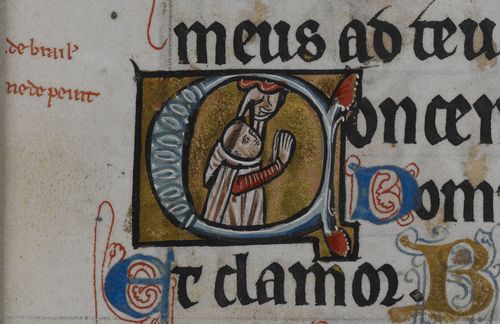 de brail'
me depeint
meus ad teu
Concen
Dom
Et clamor. B